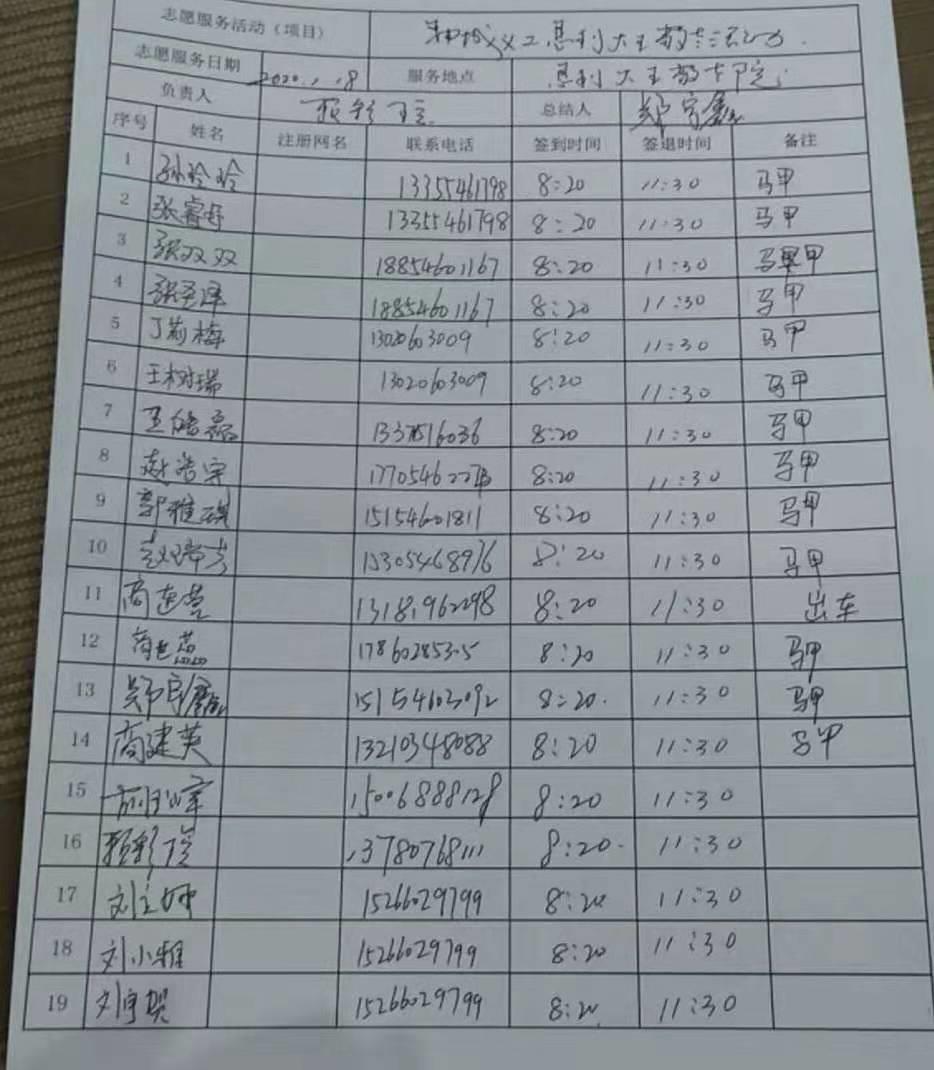 志愿服务活动（项目） 义工 利大王 敬
志愿服务日期 2020.1.18 服务地点 利大王敬老院
负责人 总结人 郑宇鑫
序号 姓名 注册网名 联系电话 签到时间 签退时间 备注
1 孙玲玲 13355461798 8:20 11:30 马甲
2 张睿 13355461798 8:20 11:30 马甲
3 张双双 18854601167 8:20 11:30 马甲
4 张圣泽 18854601167 8:20 11:30 马甲
5 丁莉梅 13020603009 8:20 11:30 马甲
6 王树瑞 13020603009 8:20 11:30 马甲
7 王皓磊 8:20 11:30 马甲
8 赵浩宇 8:20 11:30 马甲
9 郭雅琪 15154601811 8:20 11:30 马甲
10 15305468976 8:20 11:30 马甲
11 商连营 13181962298 8:20 11:30 出车
12 17860285305 8:20 11:30 马甲
13 郑宇鑫 15154603092 8:20. 11:30 马甲
14 商建英 13210348088 8:20 11:30 马甲
15 15006888128 8:20 11:30
16 13780768111 8:20. 11:30
17 刘立婷 15266029799 8:20 11:30
18 刘小雅 15266029799 8:20 11:30
19 刘宇贺 15266029799 8:20 11:30